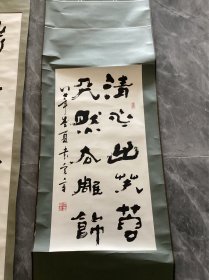 清水出芙蓉
天然去雕飾
年夏